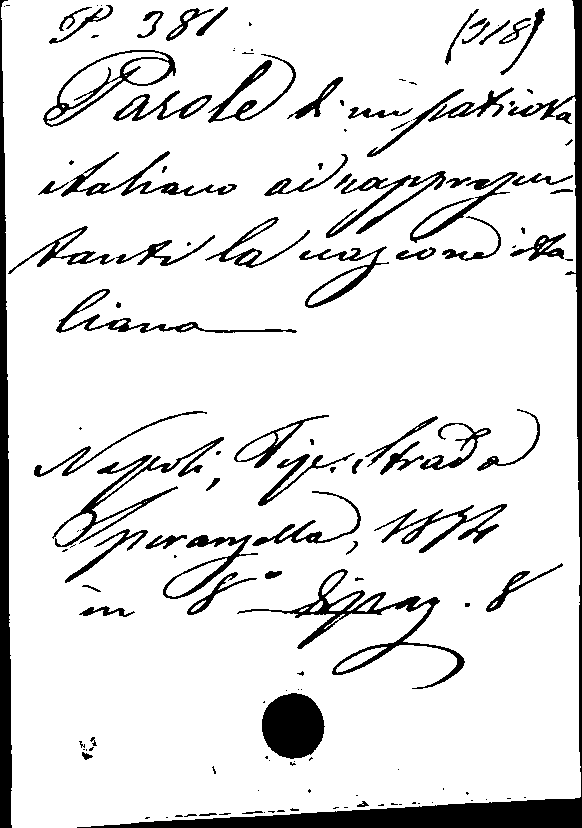 P. 381 (318)
Parole di un patriota
italiano ai rappresen-
tanti la nazione ita-
liana
Napoli, Tip. Strada
Speranzella, 1874
in 8° di pag. 8